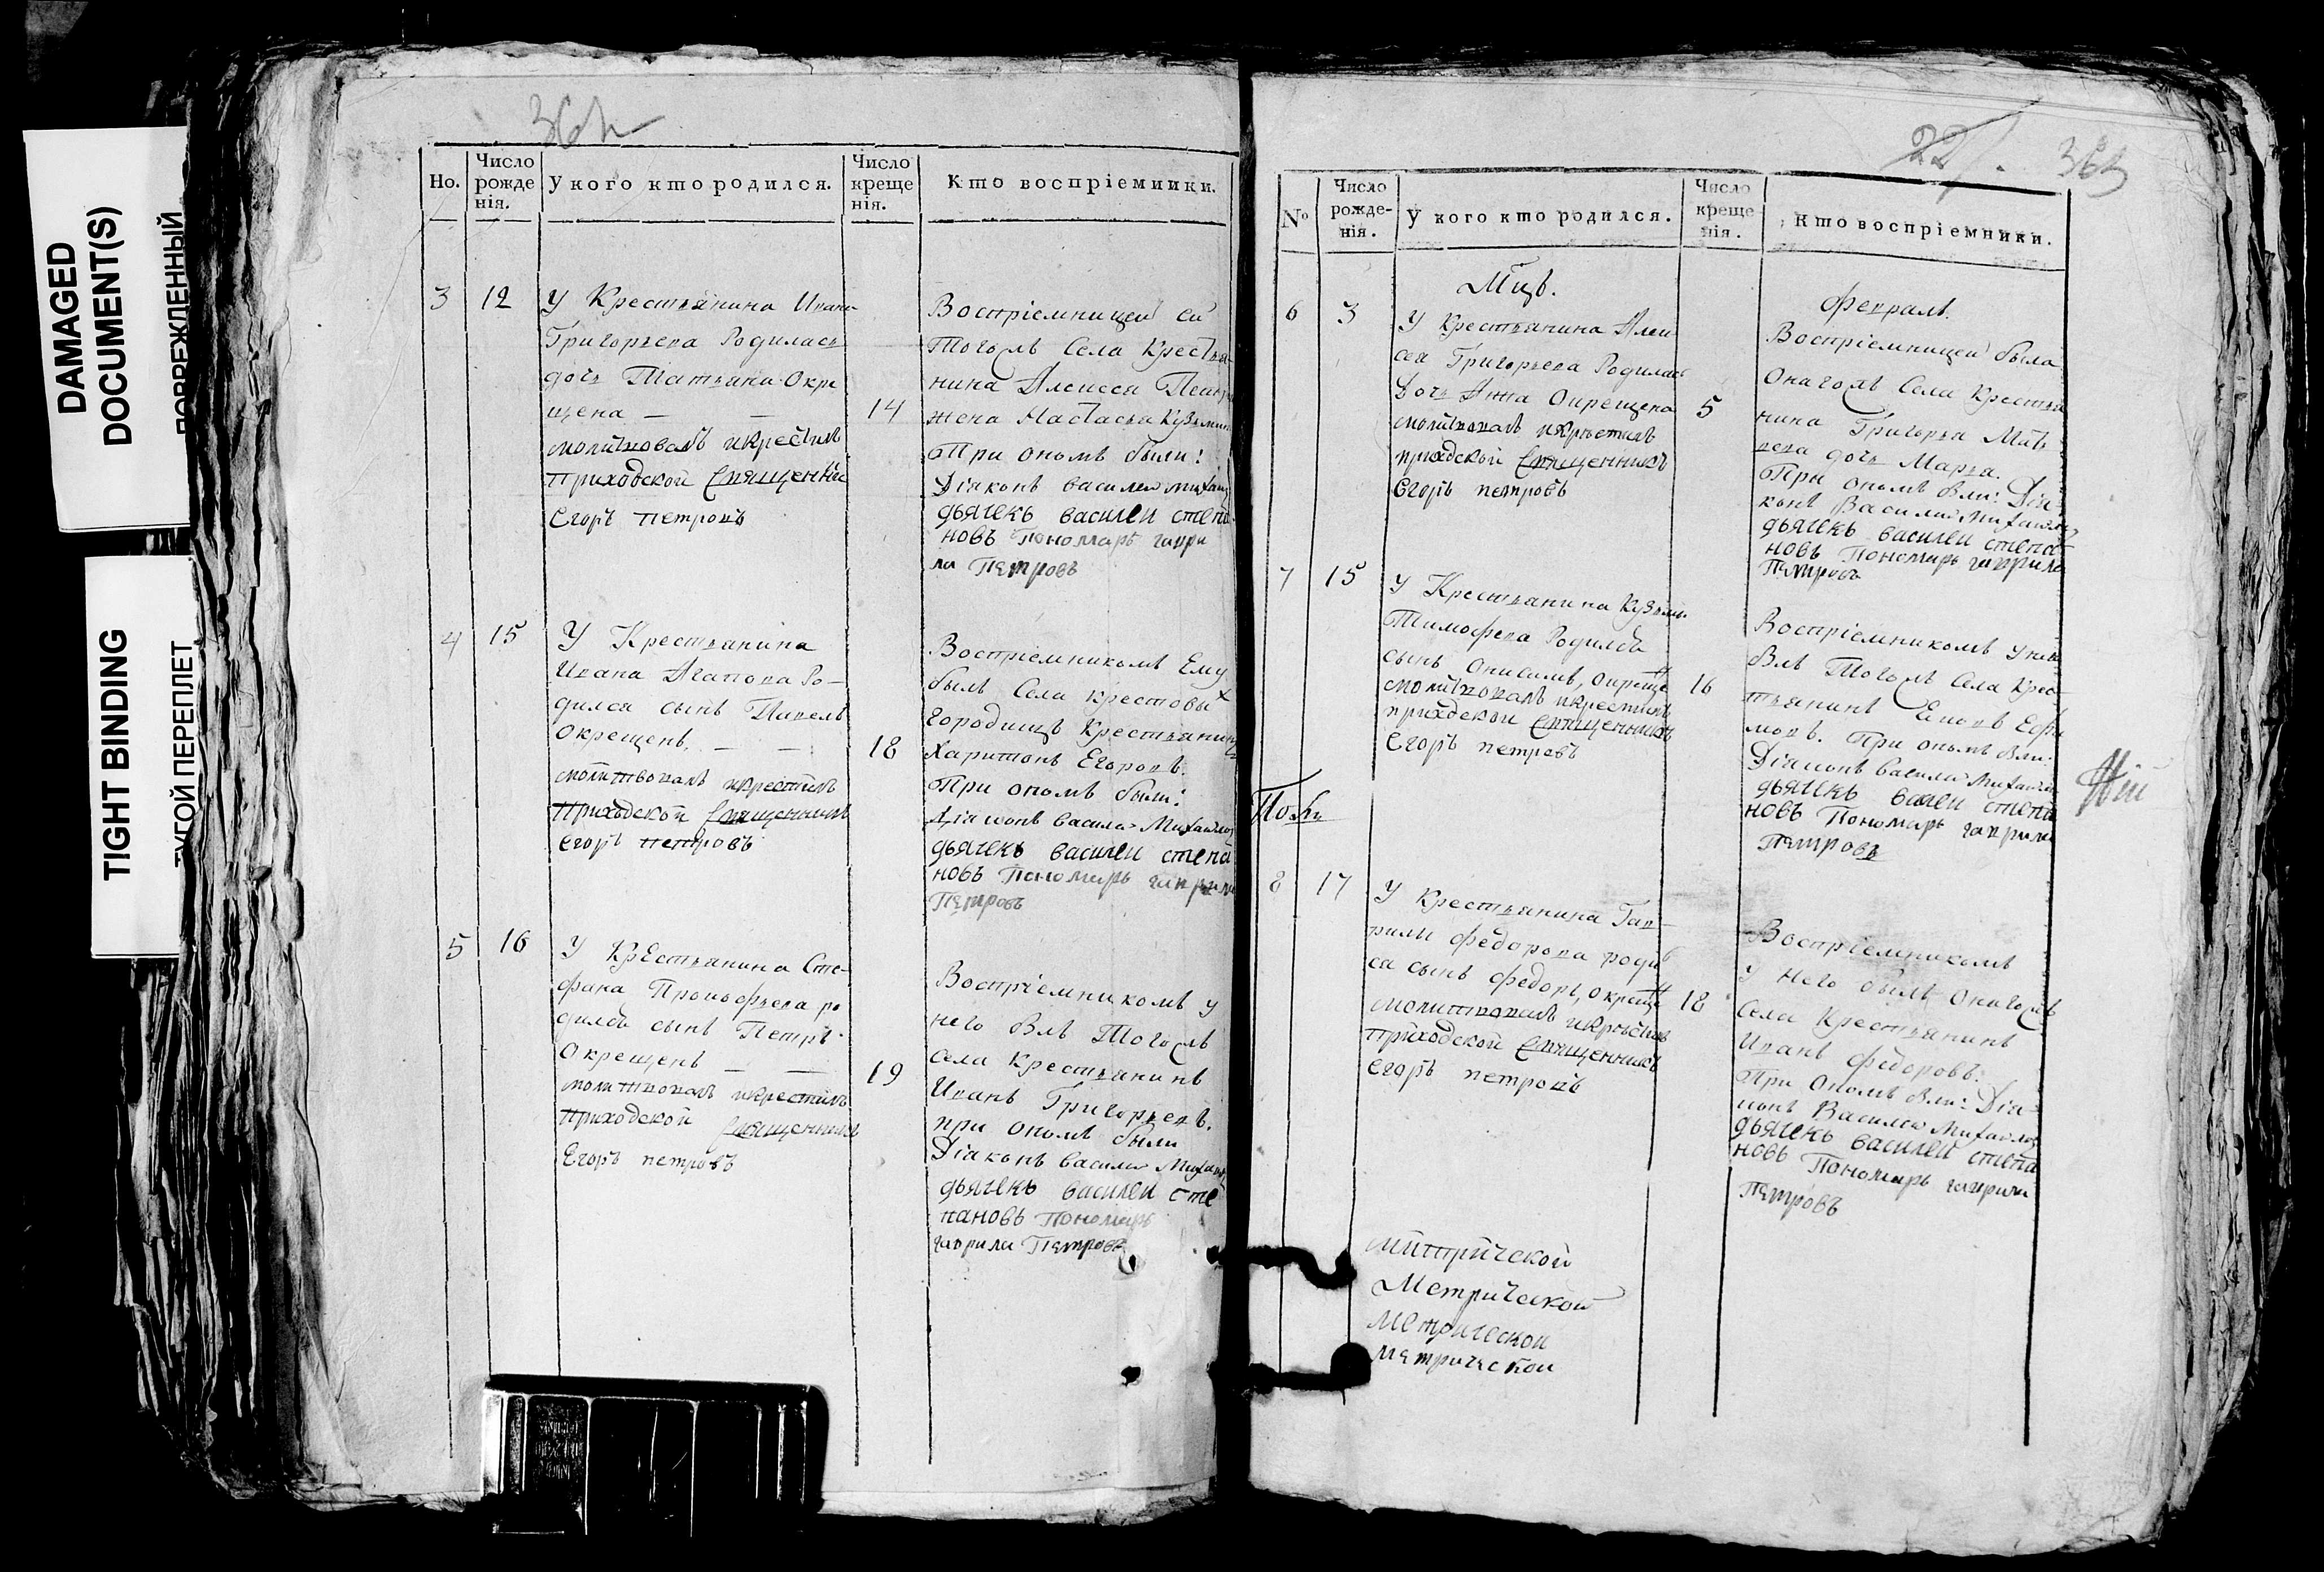 DAMAGED
DOCUMENT(S)
ПОВРЕЖДЕННЫЙ
TIGHT BINDING
ТУГОЙ ПЕРЕПЛЕТ
Но.
Число рожде нія.
У кого кто родился.
Число креще нія.
Кто воспріемники.
3 12
У Крестьянина Ивана
Григорьева Родилась
дочь Татьяна Окре
щена — —
14
молитвовалъ икрестилъ
приходской Священникъ
Егоръ петровъ
Воспріемницей ей
Тогожъ Села Крестья
нина Алексея
жена Настасья Кузьмина
При ономъ были:
Діаконъ Василей михаил
дьячекъ василеи степа
новъ Пономарь гаври
ла Петровъ
4 15
У Крестьянина
Ивана Агапова Ро-
дился сынъ Павелъ
Окрещенъ. — —
18
молитвовалъ икрестилъ
Приходской Священникъ
Егоръ петровъ
Воспріемникомъ Ему
былъ Села крестовыхъ
городищъ Крестьянинъ
Харитонъ Егоровъ.
При ономъ были:
Діаконъ Василей Михайлов
дьячекъ василеи степа
новъ Пономарь гаврила
Петровъ
5 16
У Крестьянина Сте-
фана Прокофьева ро
дился сынъ Петръ.
Окрещенъ — —
19
молитвовалъ икрестилъ
Приходской Священникъ
Егоръ петровъ
Воспріемникомъ у
него Былъ Тогожъ
села Крестьянинъ
Иванъ Григорьевъ.
при ономъ были
Діаконъ Василей Михаил
дьячекъ василеи сте
пановъ Пономарь
гаврила Петровъ
22. 363
№
Число рожде- нія.
У кого кто родился.
Число креще нія.
Кто воспріемники.
Мцъ.
Февраль.
6 3
У Крестьянина Алек
сея Григорьева Родилась
дочь Анна Окрещена
5
молитвовалъ икрестилъ
приходской Священникъ
Егоръ петровъ
Воспріемницей была
Онагожъ Села Крестья
нина Григорья Мат
веева дочь Марья.
При ономъ Были: Діа
конъ Василей Михайлов
дьячекъ василеи степа
новъ Пономарь гаврила
Петровъ
7 15
У Крестьянина Кузьмы
Тимофеева Родился
сынъ Онисимъ, окреще
16
молитвовалъ икрестилъ
приходской Священникъ
Егоръ петровъ
Воспріемникомъ у него
Былъ Тогожъ Села Крес
тьянинъ Ефи
мовъ. При ономъ Были:
Діаконъ Василей Михайлов
дьячекъ василеи степа
новъ Пономарь гаврила
Петровъ
8 17
У Крестьянина Гав-
рилы Федорова родил
ся сынъ Федоръ, окреще
18
молитвовалъ икрестилъ
приходской Священникъ
Егоръ петровъ
Воспріемникомъ
у него былъ Онагожъ
Села Крестьянинъ
Иванъ Федоровъ.
При Ономъ Были: Діа-
конъ Василей Михайлов
дьячекъ василеи степа
новъ Пономарь гаврила
Петровъ
митрической
Метрической
метрической
метрической